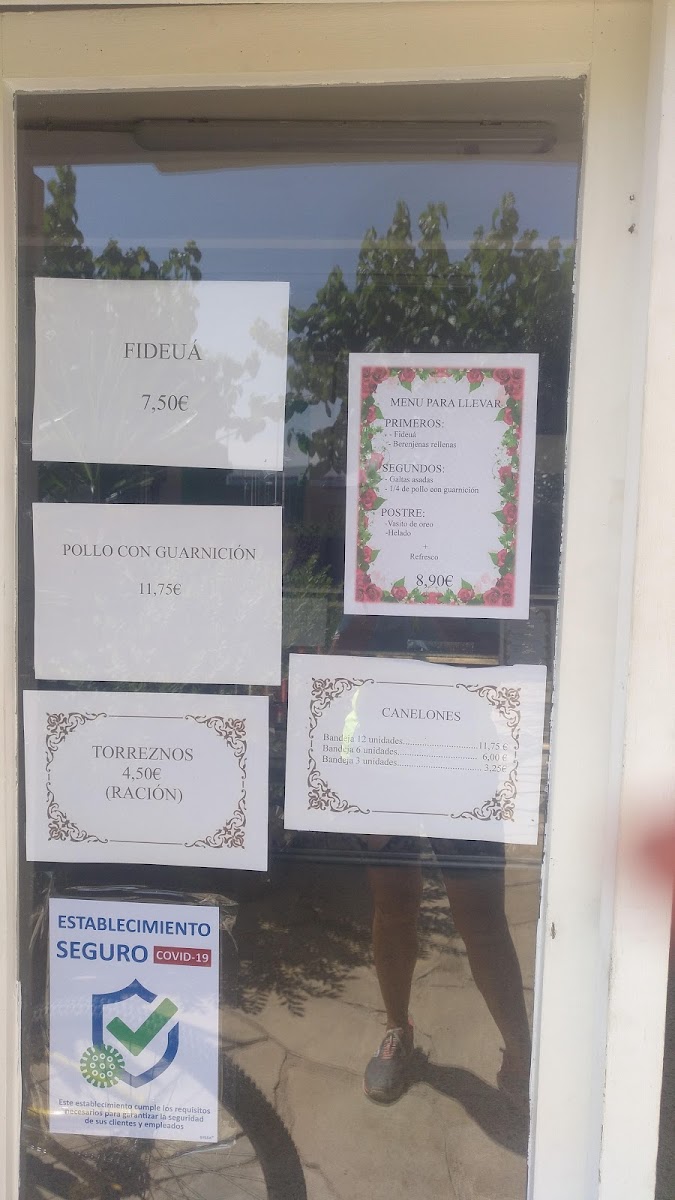 FIDEUÁ
7,50€
POLLO CON GUARNICIÓN
11,75€
TORREZNOS
4,50€
(RACIÓN)
ESTABLECIMIENTO
SEGURO COVID-19
Este establecimiento cumple los requisitos
necesarios para garantizar la seguridad
de sus clientes y empleados
MENU PARA LLEVAR
PRIMEROS:
- Fideuá
- Berenjenas rellenas
SEGUNDOS:
- Galtas asadas
- 1/4 de pollo con guarnición
POSTRE:
-Vasito de oreo
-Helado
+
Refresco
8,90€
CANELONES
Bandeja 12 unidades..............................11,75 €
Bandeja 6 unidades................................ 6,00 €
Bandeja 3 unidades.................................. 3,25€